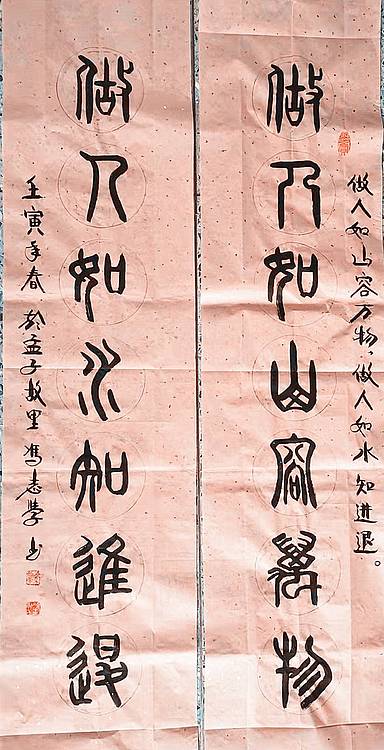 做人如山容万物，做人如水知進退。
做人如山容萬物
做人如水知進退
壬寅年春於孟子故里馮志學书